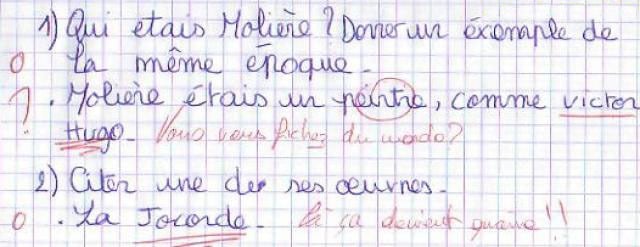 1) Qui etais Molière ? Donner un éxemple de
0 la même époque.
? . Molière étais un peintre, comme victor
Hugo. Vous vous fichez du monde ?
2) Citer une des ses oeuvres.
0 . La Joconde. là ça devient grave !!